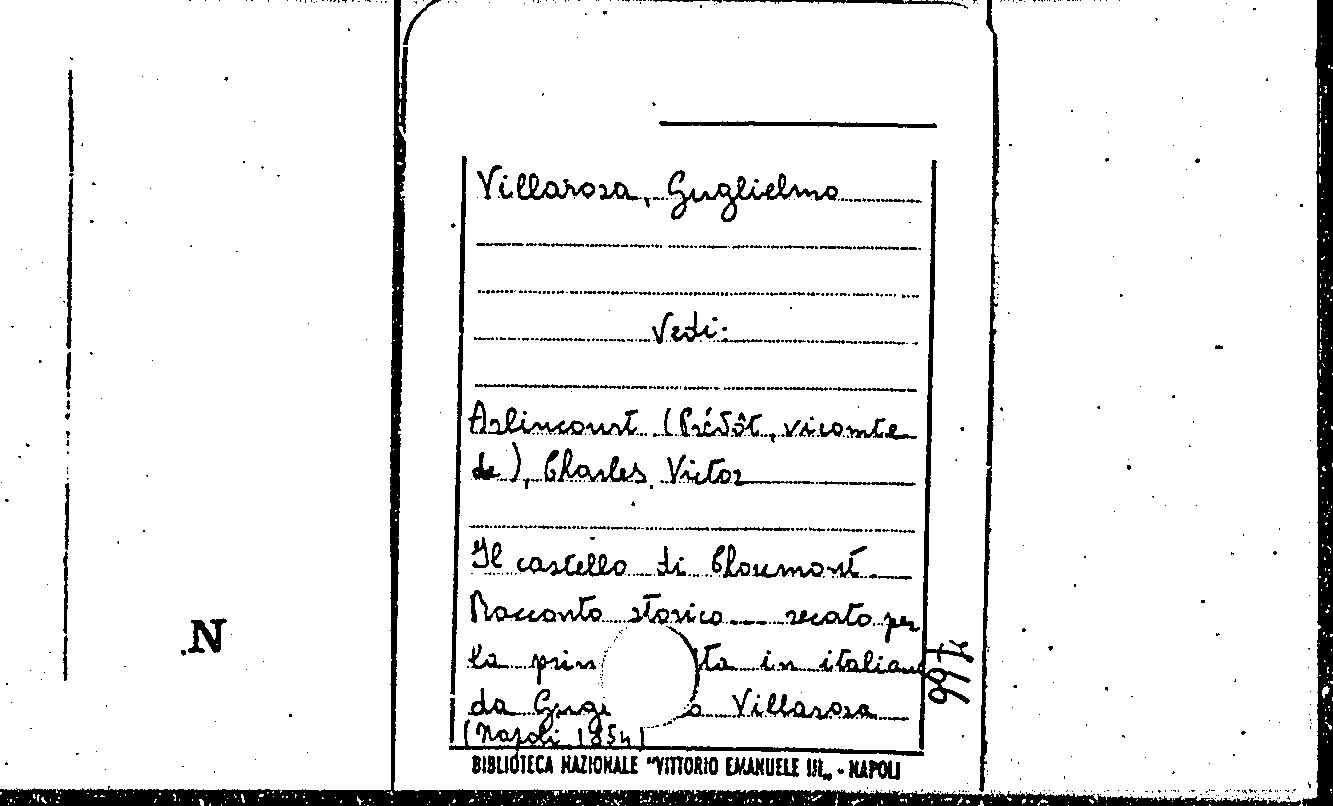 Villarosa, Guglielmo
Vedi:
Arlincourt (Prévôt, vicomte
de), Charles, Victor
Il castello di Chaumont.
Racconto storico... recato per
la prin ta in italiano
da Gugl o Villarosa
(Napoli 1854)
BIBLIOTECA NAZIONALE "VITTORIO EMANUELE III„ - NAPOLI
.N